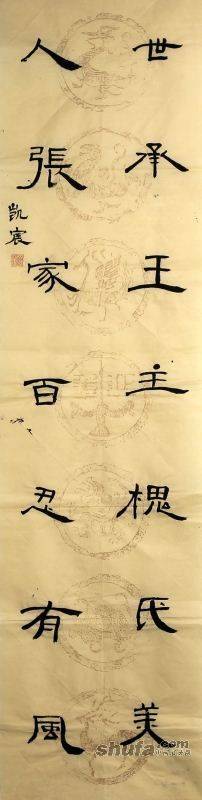 世承王主槐氏美
人張家百忍有風
凱宸
shufa.com